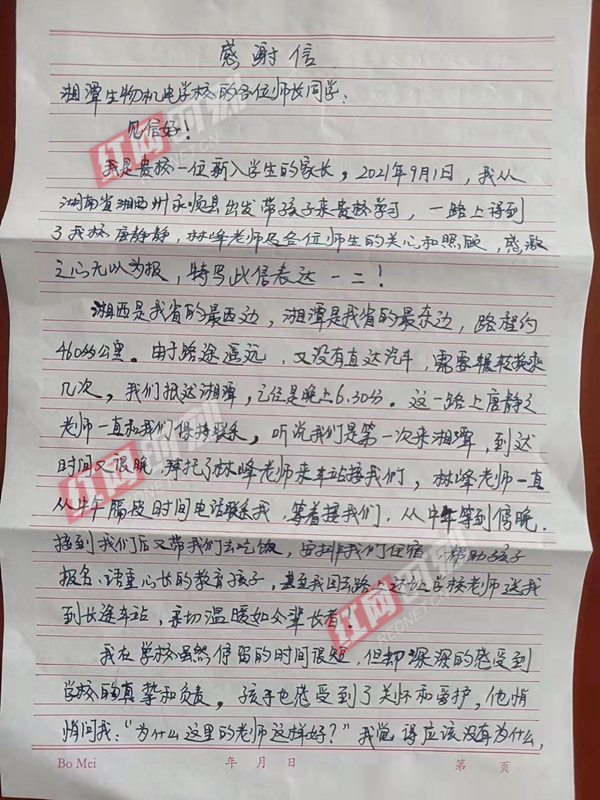 感谢信
湘潭生物机电学校的各位师长同学：
见信好！
我是贵校一位新入学生的家长，2021年9月1日，我从
湖南省湘西州永顺县出发带孩子来贵校学习，一路上得到
了我校唐静静，林峰老师及各位师生的关心和照顾，感激
之心无以为报，特写此信表达一二！
湘西是我省的最西边，湘潭是我省的最东边，路程约
460多公里。由于路途遥远，又没有直达汽车，需要辗转换乘
几次，我们抵达湘潭，已经是晚上6.30分。这一路上唐静静
老师一直和我们保持联系，听说我们是第一次来湘潭，到达
时间又很晚，拜托了林峰老师来车站接我们，林峰老师一直
从中午隔段时间电话联系我，等着接我们，从中午等到傍晚。
接到我们后又带我们去吃饭，安排我们住宿，帮助孩子
报名，语重心长的教育孩子，甚至我回去路上还让学校老师送我
到长途车站，亲切温暖如父辈长者。
我在学校虽然停留的时间很短，但却深深的感受到
学校的真挚和负责，孩子也感受到了关怀和爱护，他悄
悄问我：“为什么这里的老师这样好？”我觉得应该没有为什么，
Bo Mei 年 月 日 第 页
红网时刻
REDNET.CN